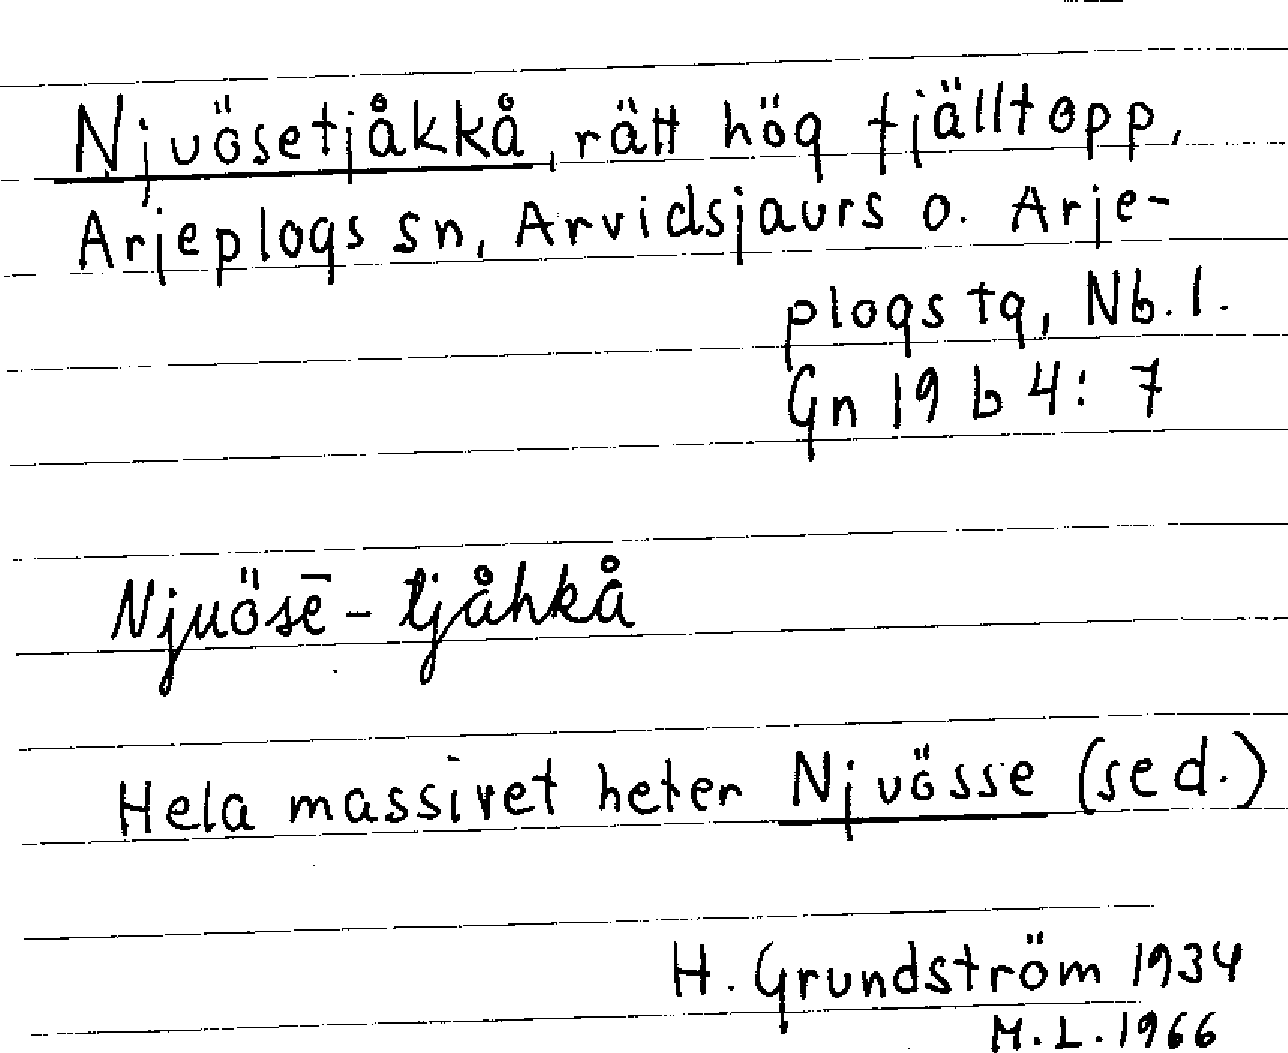 Njuösetjåkkå, rätt hög fjälltopp,
Arjeplogs sn, Arvidsjaurs o. Arje-
plogs tg, Nb. l.
Gn 19 b 4: 7
Njuösē - tjåhkå
Hela massivet heter Njuösse (sed.)
H. Grundström 1934
M. L. 1966